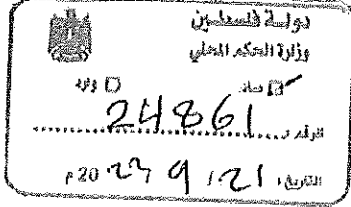 دولة فلسطين
وزارة الحكم المحلي
صادر وارد
الرقم 24861
التاريخ 21 / 9 / 2023 م